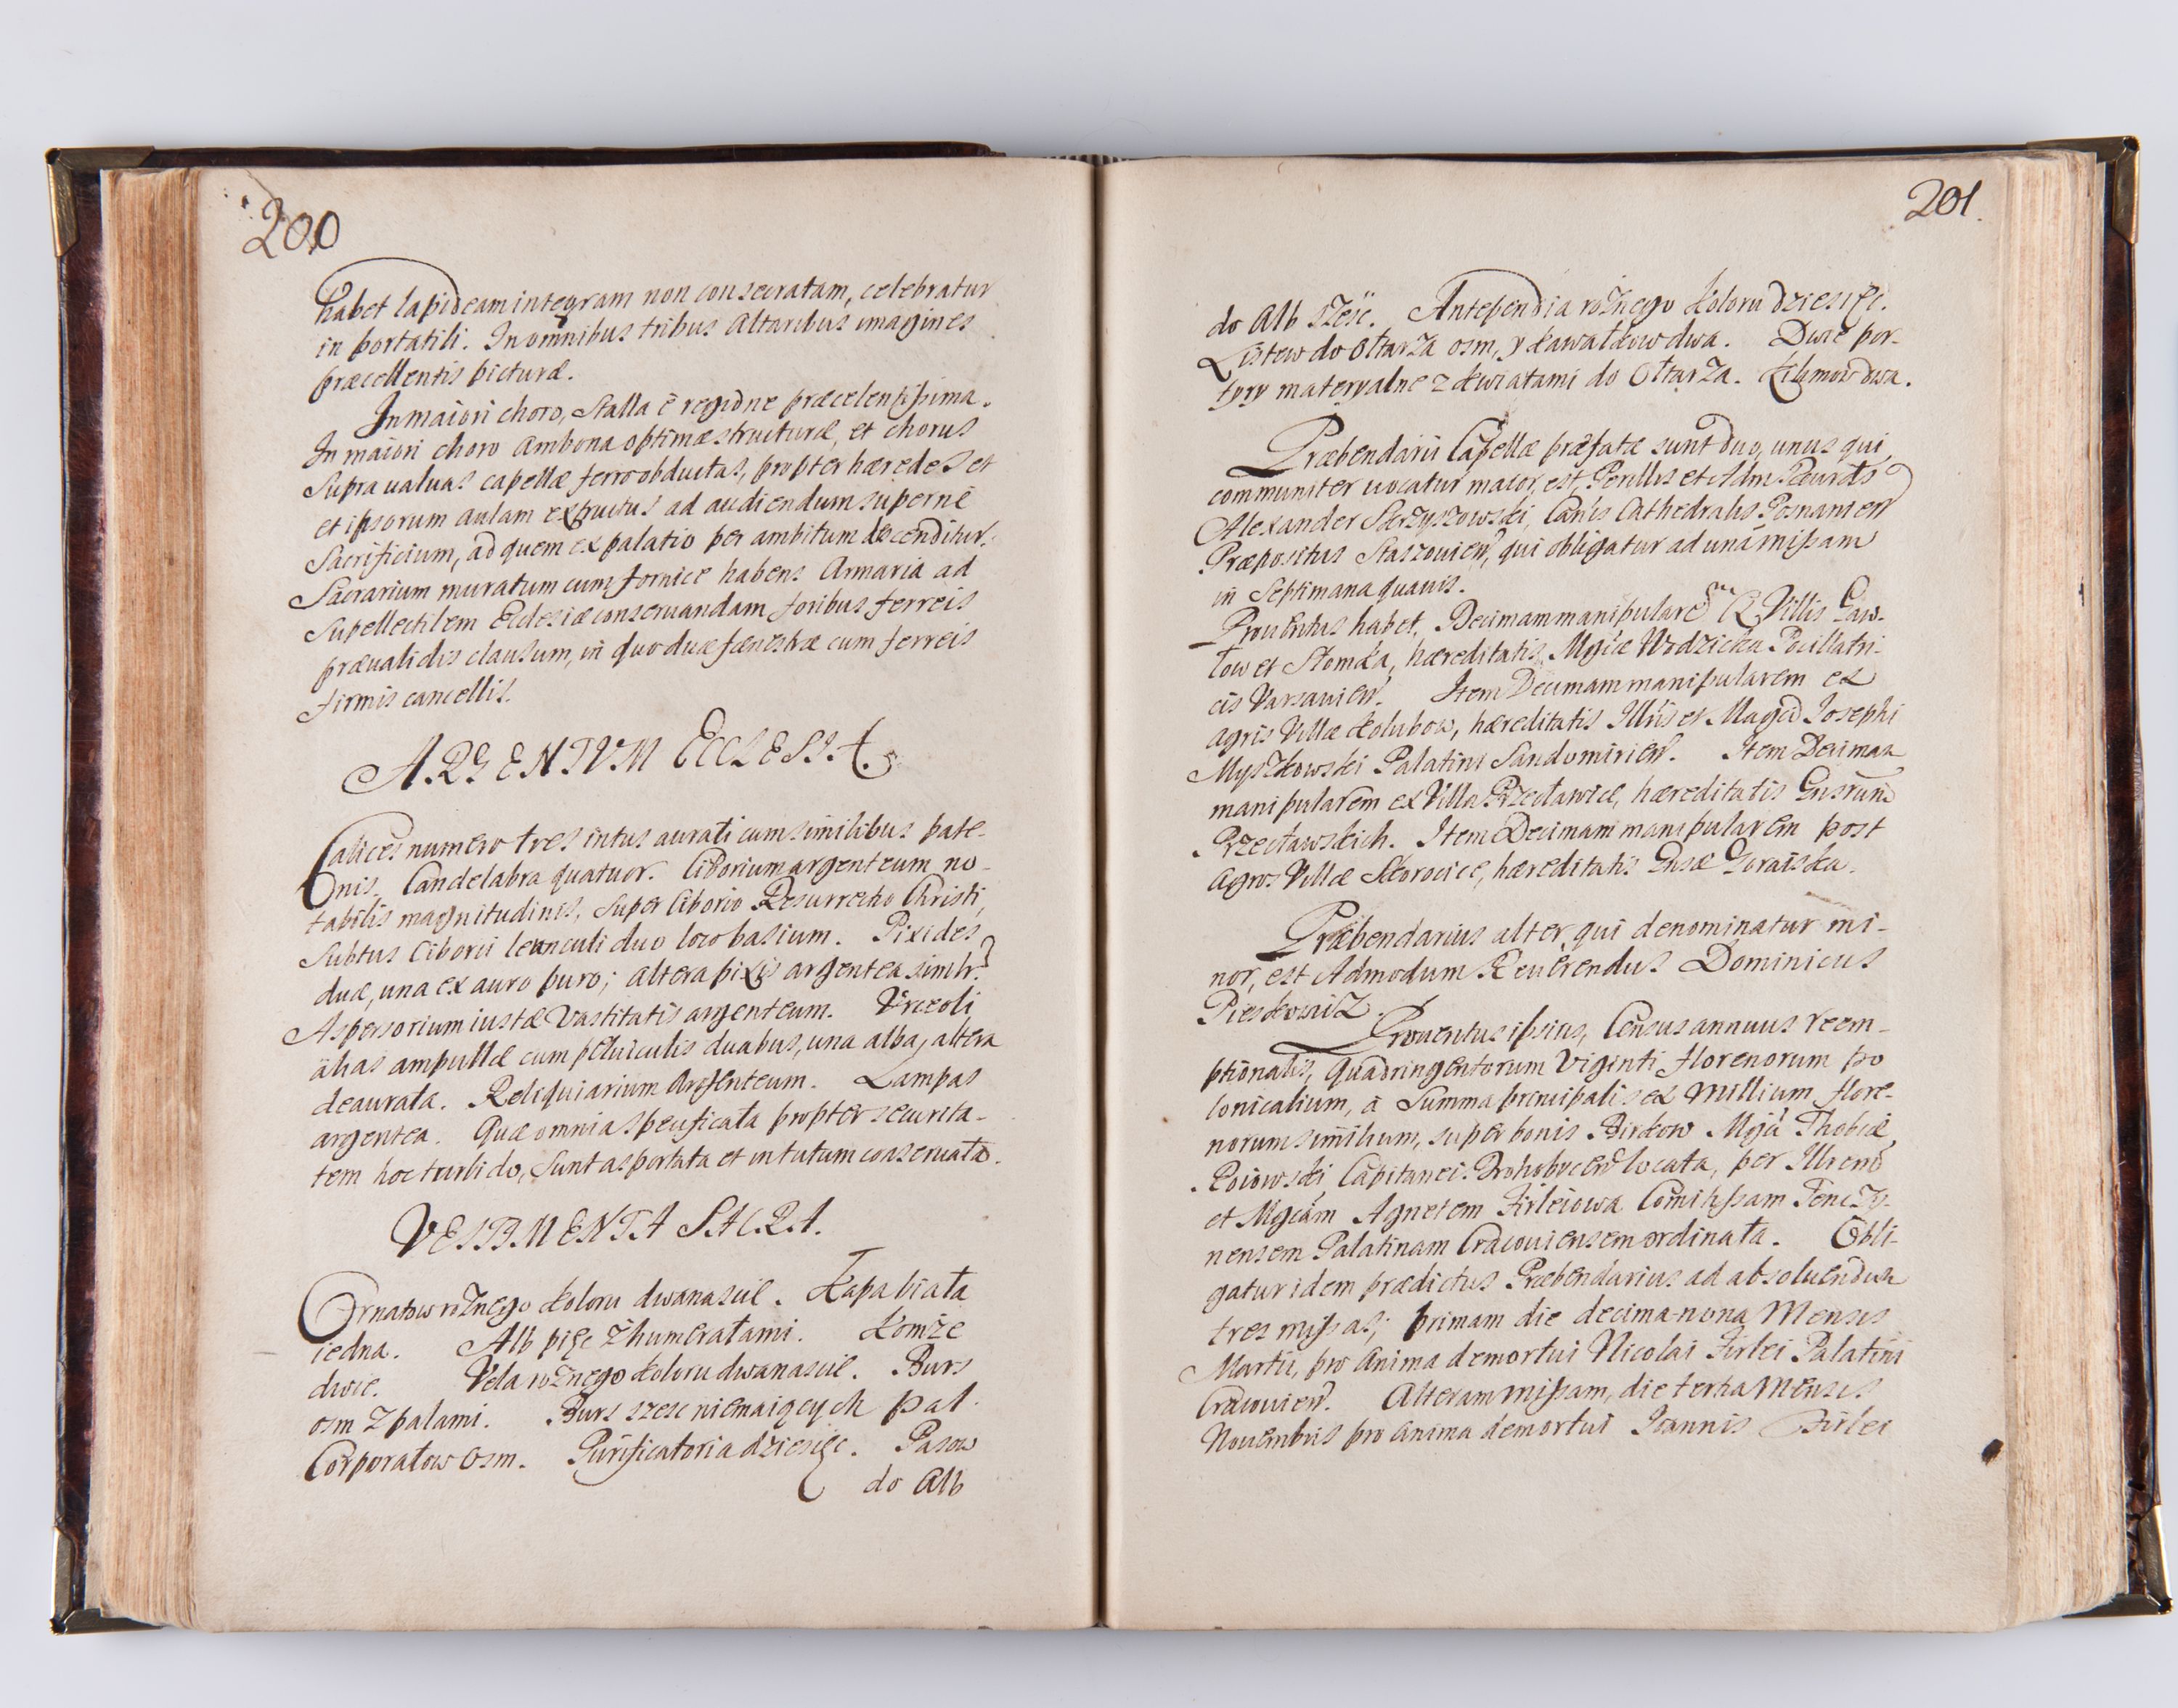 200
habet lapideam integram non consecratam, celebratur
in portatili. In omnibus tribus Altaribus imagines
præcellentis picturæ.
In maiori choro, Stalla è regione præcelentissima.
In maiori choro Ambona optimæ structuræ, et chorus
supra ualuas capellæ ferro obductas, propter hæredes et
et ipsorum aulam extructus ad audiendum supernè
Sacrificium, ad quem ex palatio per ambitum descenditur.
Sacrarium muratum cum fornice habens Armaria ad
supellectilem Ecclesiæ conseruandam foribus ferreis
præualidis clausum, in quo duæ fænestræ cum ferreis
firmis cancellis.
ARGENTVM ECCLESIÆ
Calices numero tres intus aurati cum similibus pate-
nis. Candelabra quatuor. Ciborium argenteum no-
tabilis magnitudinis, super Ciborio Resurrectio Christi,
subtus Ciborii leunculi duo loco basium. Pixides
duæ, una ex auro puro; altera pixis argentea simlr.
Aspersorium iustæ Vastitatis argenteum. Vrceoli
alias ampullæ cum peluiculis duabus, una alba, altera
deaurata. Reliquiarium Argenteum. Lampas
argentea. Quæ omnia specificata propter securita-
tem hoc turbido, sunt asportata et in tutum conseruata.
VESTIMENTA SACRA.
Ornatow rożnego koloru dwanascie. Kapa biała
iedna. Alb pięc z humerałami. Komże
dwie. Vela rożnego koloru dwanascie. Burs
osm z palami. Burs szesc niemaiących pal.
Corporałow osm. Purificatoria dziesięc. Pasow
do Alb
201.
do Alb szesc. Antependia rożnego koloru dziesięc.
Listew do Ołtarza osm, y kawałkow dwa. Dwie por-
tyry materyalne z kwiatami do Ołtarza. Kilimow dwa.
Præbendarii Capellæ præfatæ sunt duo, unus qui
communiter uocatur maior, est Perillis et Adm Reurds
Alexander Skrzyszowski, Canis Cathedralis Posnanien
Præpositus Staszouien, qui obligatur ad unā missam
in Septimana quauis.
Prouentus habet, Decimam manipularē Villis Gaw-
low et Słomka, hæreditatis Mgcæ Wodzicka Pocillatri-
cis Varsauien. Item Decimam manipularem ex
agris Villæ Kolubow, hæreditatis Illris et Magci Iosephi
Myszkowski Palatini Sandomirien. Item Decimam
manipularem ex Villa Przecławice, hæreditatis Gnsrum
Przecławskich. Item Decimam manipularem post
agros Villæ Skorocice, hæreditatis Gnsæ Goraiska.
Præbendarius alter, qui denominatur mi-
nor, est Admodum Reuerendus Dominicus
Pieskowicz.
Prouentus ipsius, Census annuus reem-
ptionalis, Quadringentorum Viginti florenorum po
lonicalium, à Summa principali sex Millium flore-
norum similium, super bonis Birkow Mgci Thobiæ
Capitanei Drohobycen locata, per Illrem
et Mgcam Agnetem Firleiowa Comitissam Tenczy-
nensem Palatinam Cracouiensem ordinata. Obli-
gatur idem prædictus Præbendarius ad absoluendum
tres missas; primam die decima-nona Mensis
Martii, pro Anima demortui Nicolai Firlei Palatini
Cracouien. Alteram missam, die tertia Mensis
Nouembris pro anima demortui Ioannis Firlei